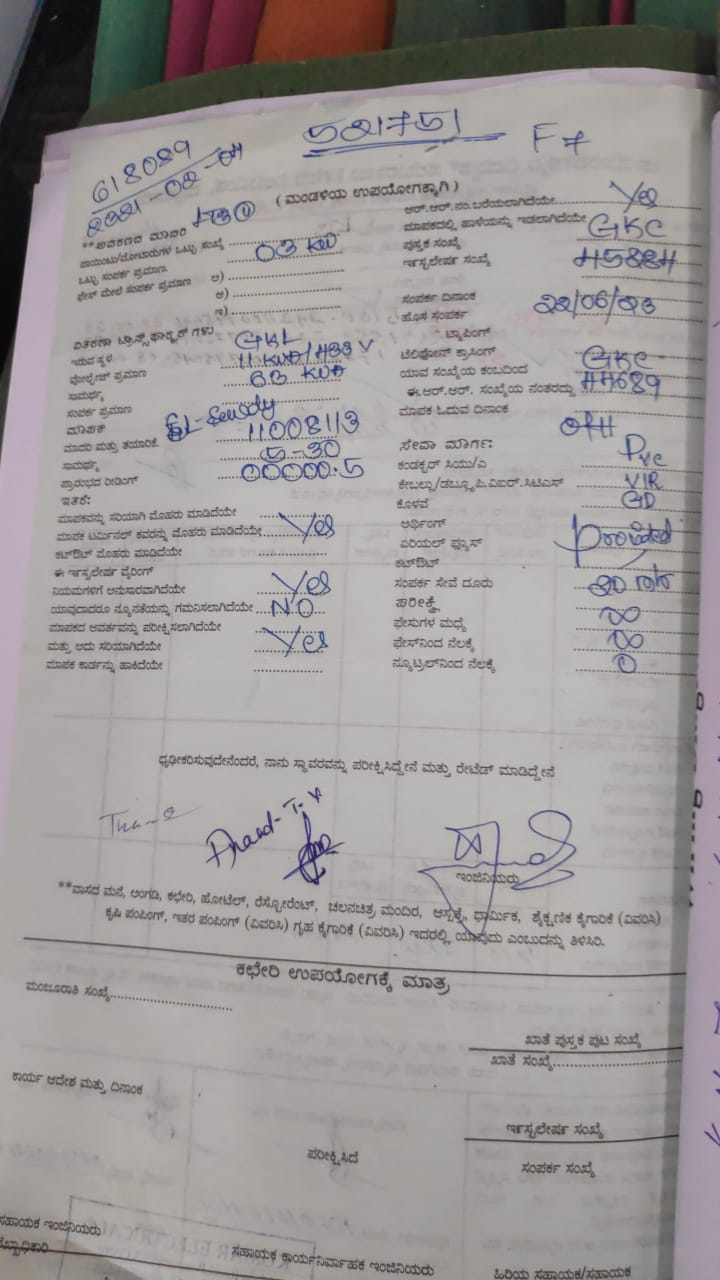 521751
F7
618089
(ಮಂಡಳಿಯ ಉಪಯೋಗಕ್ಕಾಗಿ)
**ಆವರಣದ ಮಾದರಿ
ಪಾಯಿಂಟು/ಮೋಟಾರುಗಳ ಒಟ್ಟು ಸಂಖ್ಯೆ
ಒಟ್ಟು ಸಂಪರ್ಕ ಪ್ರಮಾಣ 03 KW
ಫೇಸ್ ಮೇಲೆ ಸಂಪರ್ಕ ಪ್ರಮಾಣ ಅ)
ಆ)
ಇ)
ವಿತರಣಾ ಟ್ರಾನ್ಸ್ ಫಾರ್ಮರ್ ಗಳು
ಇರುವ ಸ್ಥಳ GKL
ವೋಲ್ಟೇಜ್ ಪ್ರಮಾಣ
ಸಾಮರ್ಥ್ಯ 63 KVA
ಸಂಪರ್ಕ ಪ್ರಮಾಣ
ಮಾಪಕ
ಮಾದರಿ ಮತ್ತು ತಯಾರಿಕೆ. 11008113
ಸಾಮರ್ಥ್ಯ 5-30
ಪ್ರಾರಂಭದ ರೀಡಿಂಗ್ 00000.5
ಇತರೆ:
ಮಾಪಕವನ್ನು ಸರಿಯಾಗಿ ಮೊಹರು ಮಾಡಿದೆಯೇ
ಮಾಪಕ ಟರ್ಮಿನಲ್ ಕವರನ್ನು ಮೊಹರು ಮಾಡಿದೆಯೇ Yes
ಕಟ್‌ಔಟ್ ಮೊಹರು ಮಾಡಿದೆಯೇ
ಈ ಇನ್ಸ್ಟಲೇಷನ್ ವೈರಿಂಗ್
ನಿಯಮಗಳಿಗೆ ಅನುಸಾರವಾಗಿದೆಯೇ Yes
ಯಾವುದಾದರೂ ನ್ಯೂನತೆಯನ್ನು ಗಮನಿಸಲಾಗಿದೆಯೇ NO
ಮಾಪಕದ ಆವರ್ತವನ್ನು ಪರೀಕ್ಷಿಸಲಾಗಿದೆಯೇ
ಮತ್ತು ಅದು ಸರಿಯಾಗಿದೆಯೇ Yes
ಮಾಪಕ ಕಾರ್ಡನ್ನು ಹಾಕಿದೆಯೇ
ಆರ್.ಆರ್.ನಂ.ಬರೆಯಲಾಗಿದೆಯೇ Yes
ಮಾಪಕದಲ್ಲಿ ಹಾಳೆಯನ್ನು ಇಡಲಾಗಿದೆಯೇ
ಪುಸ್ತಕ ಸಂಖ್ಯೆ GKC
ಇನ್ಸ್ಟಲೇಷನ್ ಸಂಖ್ಯೆ 45884
ಸಂಪರ್ಕ ದಿನಾಂಕ 22/06/23
ಹೊಸ ಸಂಪರ್ಕ
ಟ್ಯಾಪಿಂಗ್
ಟೆಲಿಫೋನ್ ಕ್ರಾಸಿಂಗ್
ಯಾವ ಸಂಖ್ಯೆಯ ಕಂಬದಿಂದ GKC
ಈ.ಆರ್.ಆರ್. ಸಂಖ್ಯೆಯ ನಂತರದ್ದು 44689
ಮಾಪಕ ಓದುವ ದಿನಾಂಕ
ಸೇವಾ ಮಾರ್ಗ: OH
ಕಂಡಕ್ಟರ್ ಸಿಯು/ಎ Pvc
ಕೇಬಲ್ಲು/ಡಬ್ಲ್ಯೂ.ಪಿ.ಐಆರ್.ಸಿಟಿಎಸ್ VIR
ಕೊಳವೆ GD
ಅರ್ಥಿಂಗ್
ಏರಿಯಲ್ ಫ್ಯೂಸ್ provided
ಕಟ್‌ಔಟ್
ಸಂಪರ್ಕ ಸೇವೆ ದೂರು 20 mtr
ಪರೀಕ್ಷೆ
ಫೇಸುಗಳ ಮಧ್ಯೆ ∞
ಫೇಸ್‌ನಿಂದ ನೆಲಕ್ಕೆ ∞
ನ್ಯೂಟ್ರಲ್‌ನಿಂದ ನೆಲಕ್ಕೆ 0
ಧೃಢೀಕರಿಸುವುದೇನೆಂದರೆ, ನಾನು ಸ್ಥಾವರವನ್ನು ಪರೀಕ್ಷಿಸಿದ್ದೇನೆ ಮತ್ತು ರೇಟೆಡ್ ಮಾಡಿದ್ದೇನೆ
ಇಂಜಿನಿಯರು
**ವಾಸದ ಮನೆ, ಅಂಗಡಿ, ಕಛೇರಿ, ಹೋಟೆಲ್, ರೆಸ್ಟೋರೆಂಟ್, ಚಲನಚಿತ್ರ ಮಂದಿರ, ಆಸ್ಪತ್ರೆ, ಧಾರ್ಮಿಕ, ಶೈಕ್ಷಣಿಕ ಕೈಗಾರಿಕೆ (ವಿವರಿಸಿ)
ಕೃಷಿ ಪಂಪಿಂಗ್, ಇತರ ಪಂಪಿಂಗ್ (ವಿವರಿಸಿ) ಗೃಹ ಕೈಗಾರಿಕೆ (ವಿವರಿಸಿ) ಇದರಲ್ಲಿ ಯಾವುದು ಎಂಬುದನ್ನು ತಿಳಿಸಿರಿ.
ಕಛೇರಿ ಉಪಯೋಗಕ್ಕೆ ಮಾತ್ರ
ಮಂಜೂರಾತಿ ಸಂಖ್ಯೆ
ಖಾತೆ ಪುಸ್ತಕ ಪುಟ ಸಂಖ್ಯೆ
ಖಾತೆ ಸಂಖ್ಯೆ
ಕಾರ್ಯ ಆದೇಶ ಮತ್ತು ದಿನಾಂಕ
ಇನ್ಸ್ಟಲೇಷನ್ ಸಂಖ್ಯೆ
ಪರೀಕ್ಷಿಸಿದೆ
ಸಂಪರ್ಕ ಸಂಖ್ಯೆ
ಸಹಾಯಕ ಇಂಜಿನಿಯರು
ಸಹಾಯಕ ಕಾರ್ಯನಿರ್ವಾಹಕ ಇಂಜಿನಿಯರು
ಹಿರಿಯ ಸಹಾಯಕ/ಸಹಾಯಕ